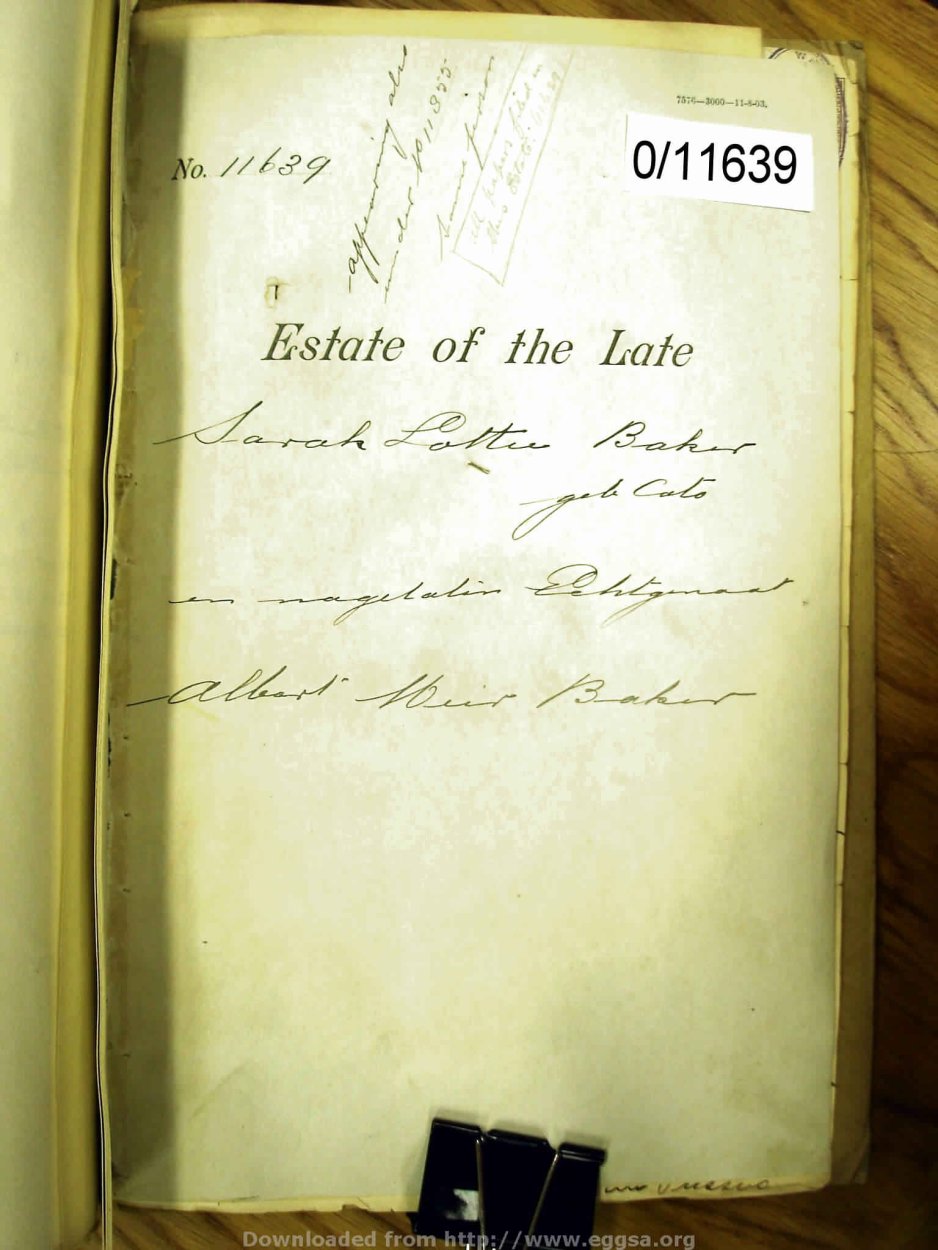 7576—3000—11-8-03.
0/11639
No. 11639
appearing also
under 0/11855
same person
all papers filed in
this Estate 11639
Estate of the Late
Sarah Lottie Baker
geb Cato
en nagelaten Echtgenoot
Albert Weir Baker
Downloaded from http://www.eggsa.org